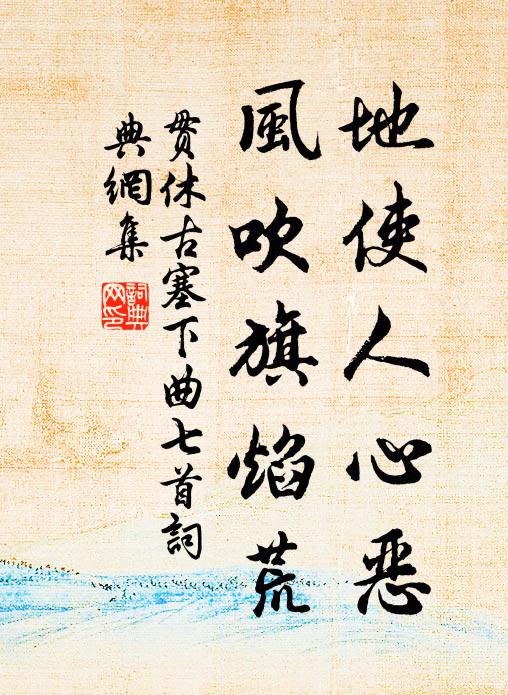 地使人心恶
風吹旗焰荒
贯休古塞下曲七首詞
典網集
詞典
网印